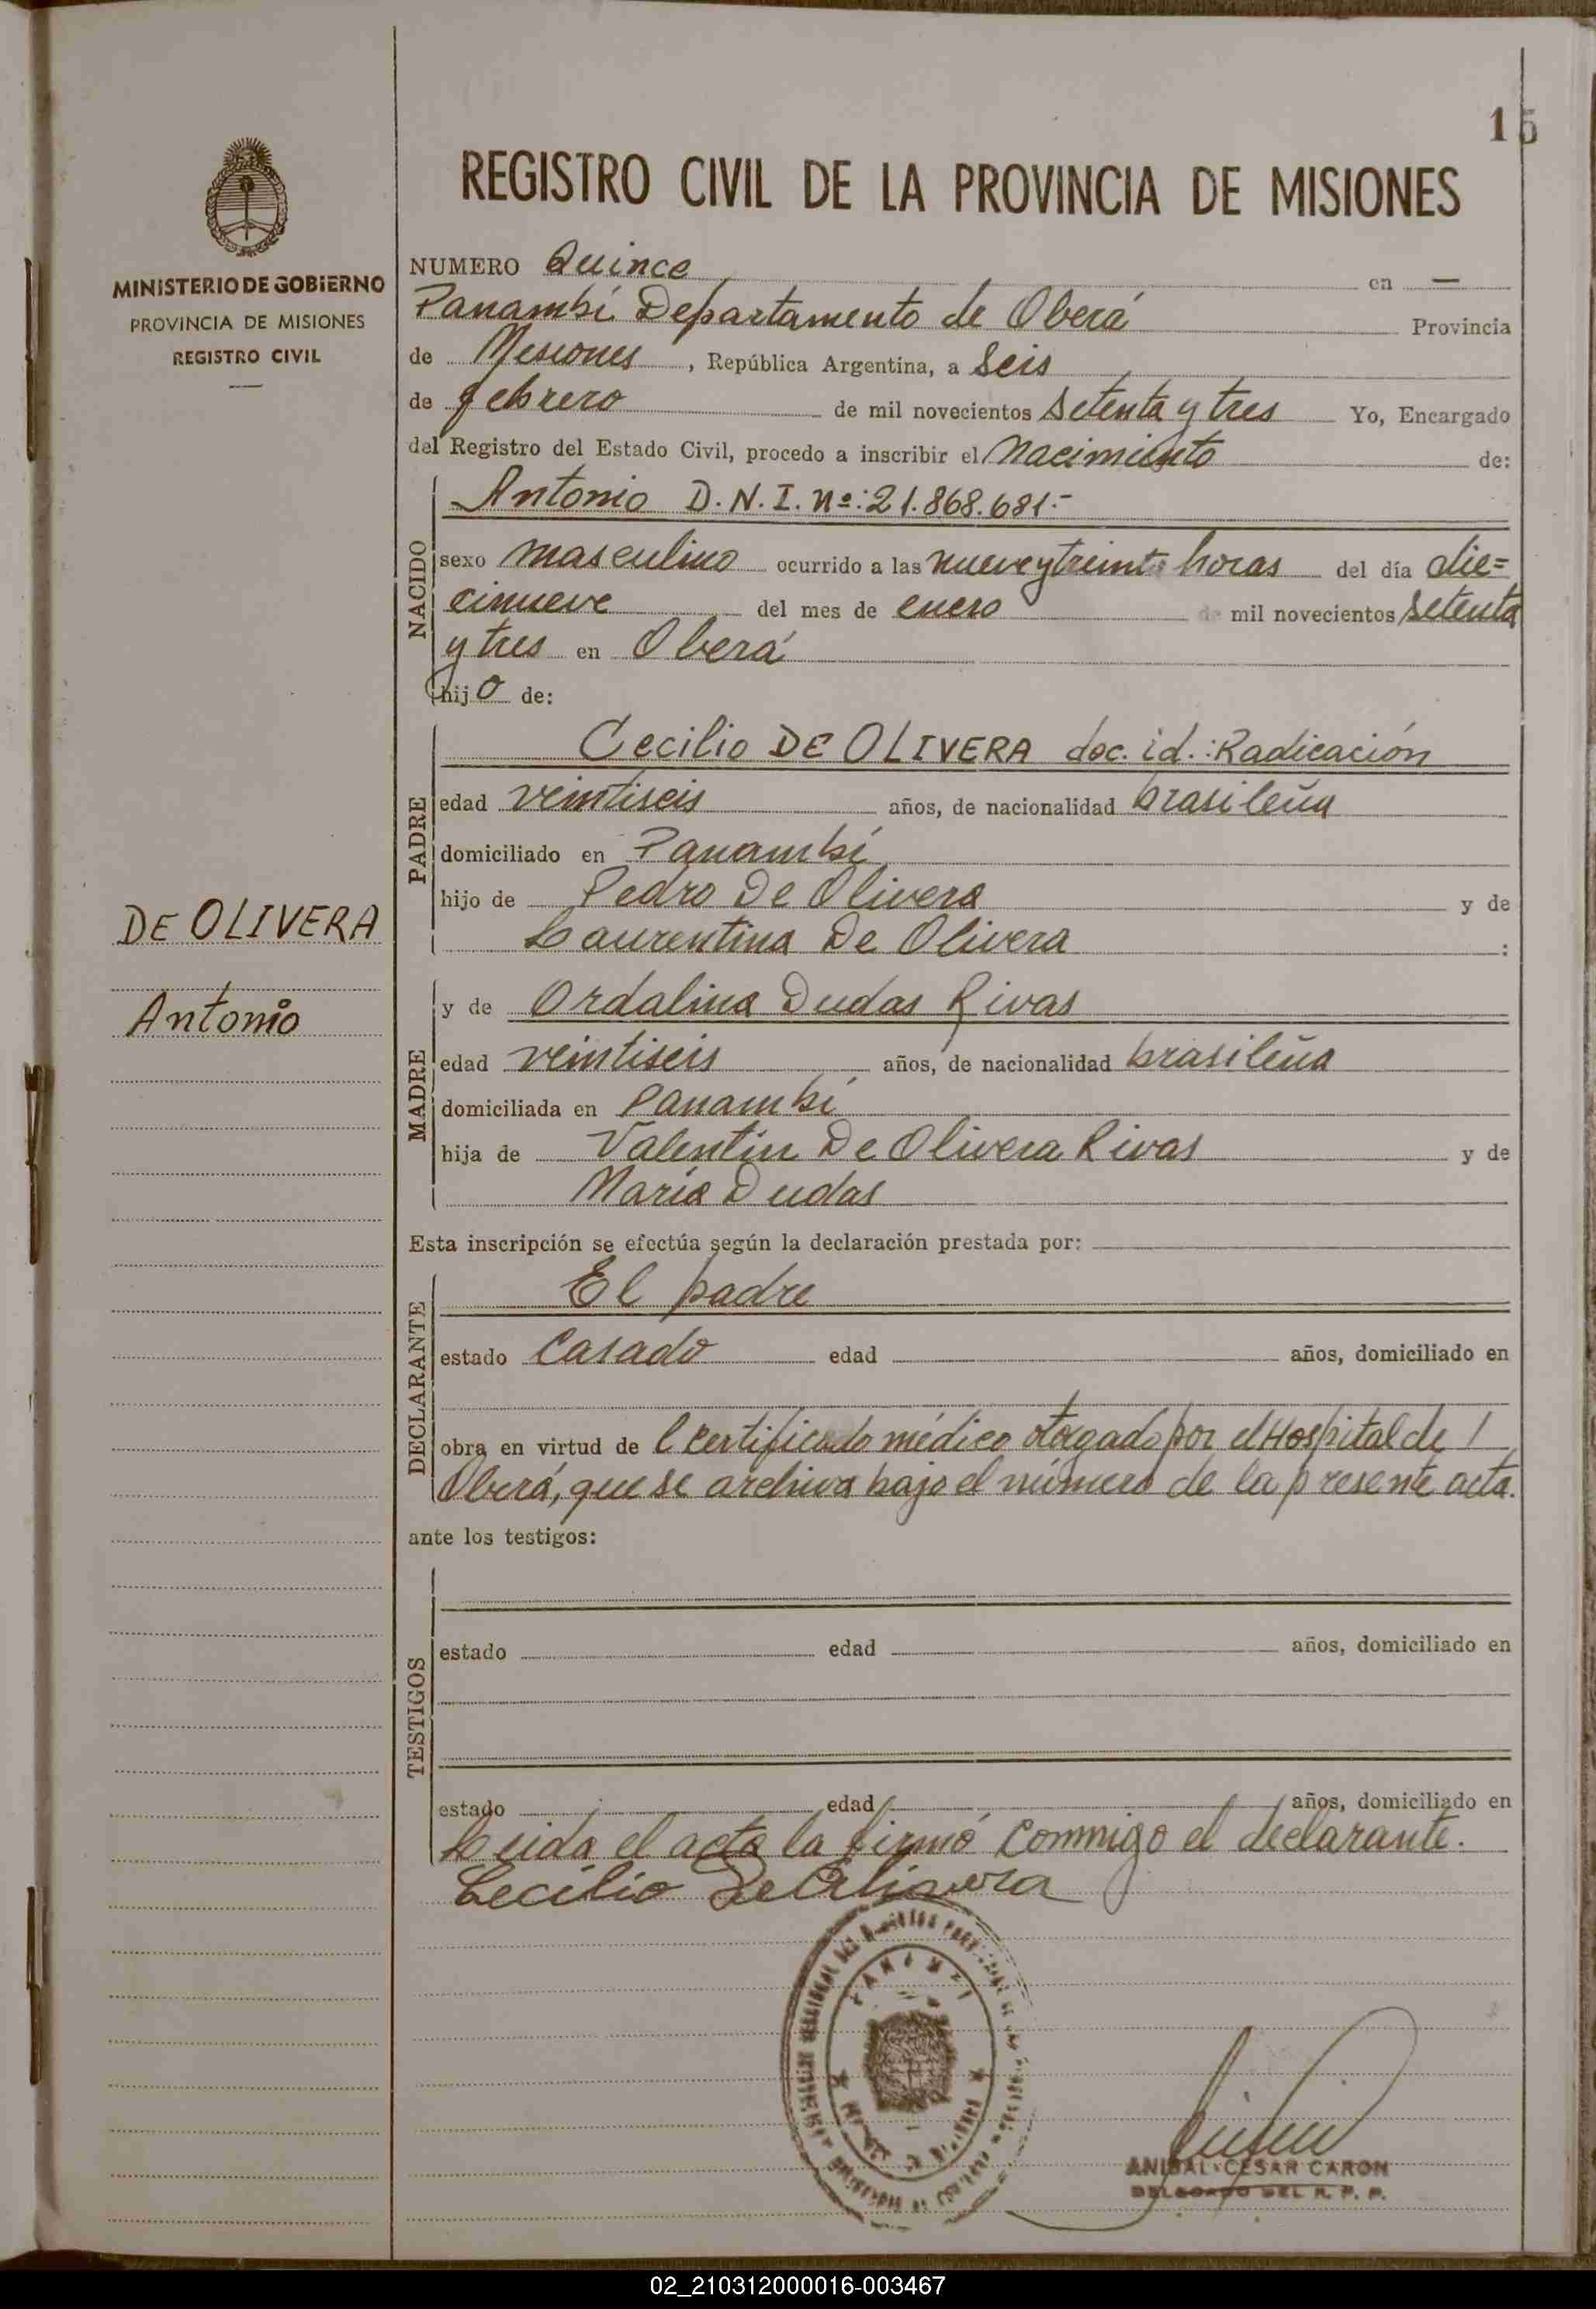 15
REGISTRO CIVIL DE LA PROVINCIA DE MISIONES
MINISTERIO DE GOBIERNO
PROVINCIA DE MISIONES
REGISTRO CIVIL
NUMERO Quince en —
Panambí Departamento de Oberá Provincia
de Misiones, República Argentina, a Seis
de febrero de mil novecientos setenta y tres Yo, Encargado
del Registro del Estado Civil, procedo a inscribir el Nacimiento de:
NACIDO
Antonio D.N.I. Nº:21.868.681.-
sexo masculino ocurrido a las nueve y treinta horas del día die=
cinueve del mes de enero de mil novecientos setenta
y tres en Oberá
hijo de:
PADRE
Cecilio DE OLIVERA doc. id.: Radicación
edad veintiseis años, de nacionalidad brasileña
domiciliado en Panambí
hijo de Pedro De Olivera y de
Laurentina De Olivera :
DE OLIVERA
Antonio
MADRE
y de Ordalina Dudas Rivas
edad veintiseis años, de nacionalidad brasileña
domiciliada en Panambí
hija de Valentin De Olivera Rivas y de
María Dudas
Esta inscripción se efectúa según la declaración prestada por:
DECLARANTE
El padre
estado Casado edad años, domiciliado en
obra en virtud de l certificado médico otorgado por el Hospital de
Oberá, que se archiva bajo el número de la presente acta.
ante los testigos:
TESTIGOS
estado edad años, domiciliado en
estado edad años, domiciliado en
Leida el acta la firmó conmigo el declarante.
Cecilio De Olivera
PANAMBI
ANIBAL CESAR CARON
DELEGADO DEL R. P. P.
02_210312000016-003467